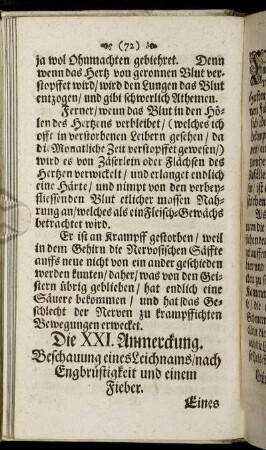 (72)
ja wol Ohnmachten gebiehret. Denn
wenn das Hertz von geronnen Blut ver-
stopffet wird/ wird den Lungen das Blut
entzogen/ und gibt schwerlich Athemen.
Ferner/ wenn das Blut in den Hö-
len des Hertzens verbleibet/ (welches ich
offt in verstorbenen Leibern gesehen/ da
di Monatliche Zeit verstopffet gewesen/)
wird es von Zäserlein oder Flächsen des
Hertzen verwickelt/ und erlanget endlich
eine Härte/ und nimpt von den verbey-
fliessenden Blut etlicher massen Nah-
rung an/ welches als ein Fleisch-Gewächs
betrachtet wird.
Er ist an Krampff gestorben/ weil
in dem Gehirn die Nervosischen Säffte
auffs neue nicht von ein ander geschieden
werden kunten/ daher/ was von den Gei-
stern übrig geblieben/ hat endlich eine
Säuere bekommen/ und hat das Ge-
schlecht der Nerven zu krampffichten
Bewegungen erwecket.
Die XXI. Anmerckung.
Beschauung eines Leichnams/ nach
Engbrüstigkeit und einem
Fieber.
Eines